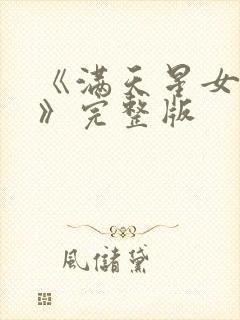 《满天星女
》完整版
風儲黛